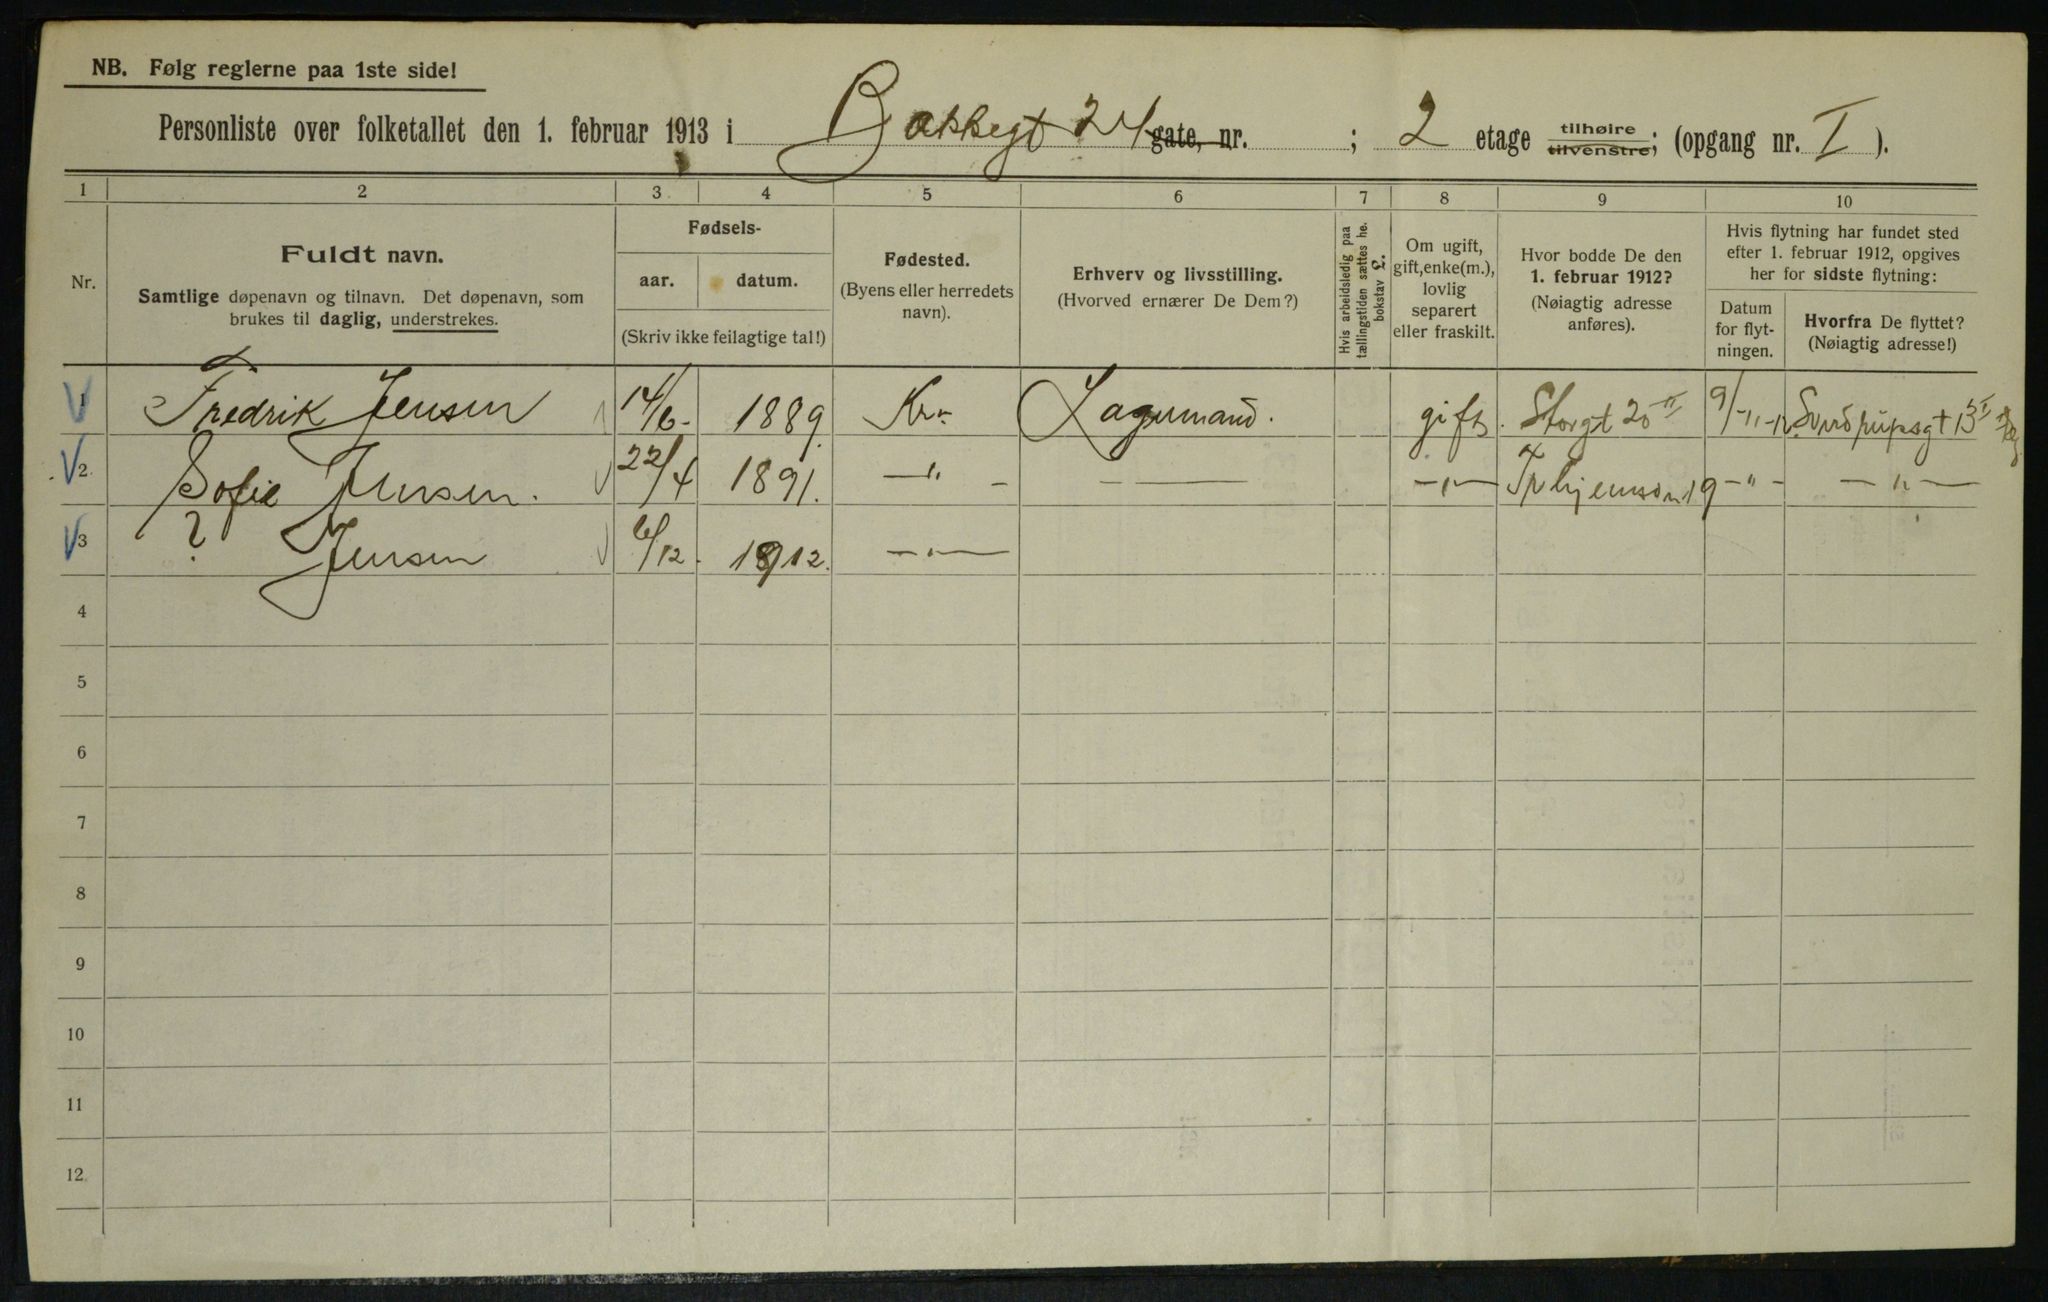 NB. Følg reglerne paa 1ste side!
Personliste over folketallet den 1. februar 1913 i Bakkegt 24 gate, nr. ; 2 etage tilhøire tilvenstre; (opgang nr. I ).
1 2 3 4 5 6 7 8 9 10
Nr.
Fuldt navn.
Samtlige døpenavn og tilnavn. Det døpenavn, som
brukes til daglig, understrekes.
Fødsels-
aar. datum.
(Skriv ikke feilagtige tal!)
Fødested.
(Byens eller herredets
navn).
Erhverv og livsstilling.
(Hvorved ernærer De Dem?)
Hvis arbeidsledig paa
tællingstiden sættes he.
bokstav L.
Om ugift,
gift, enke(m.),
lovlig
separert
eller fraskilt.
Hvor bodde De den
1. februar 1912?
(Nøiagtig adresse
anføres).
Hvis flytning har fundet sted
efter 1. februar 1912, opgives
her for sidste flytning:
Datum
for flyt-
ningen.
Hvorfra De flyttet?
(Nøiagtig adresse!)
1 Fredrik Jensen 14/6- 1889 Kr. Lagermand. gift. Storgt 20 II 9/-11-12
2 Sofie Jensen. 22/4 1891. —"— - —— —"— 19 -"- —"—
3 ? Jensen 6/12. 1912. —"—
4
5
6
7
8
9
10
11
12